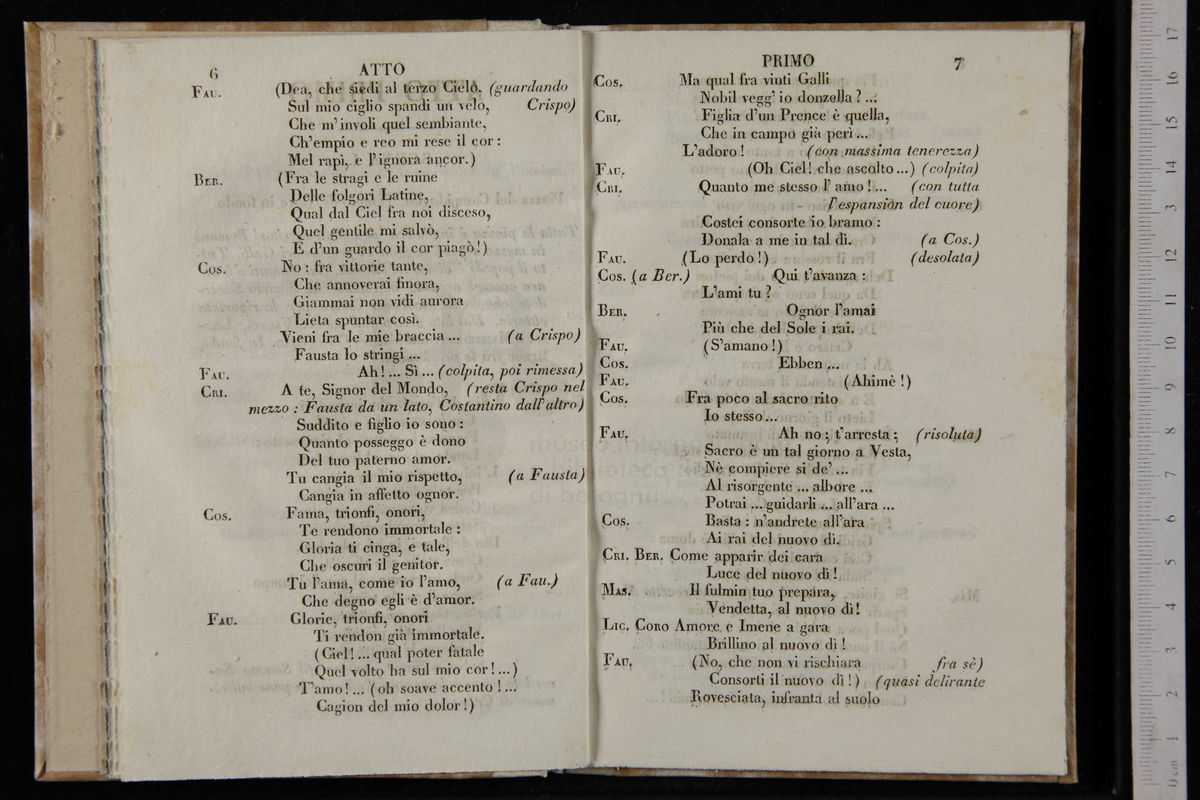 6
ATTO
FAU. (Dea, che siedi al terzo Cielo, (guardando
Sul mio ciglio spandi un velo, Crispo)
Che m'involi quel sembiante,
Ch'empio e reo mi rese il cor :
Mel rapì, e l'ignora ancor.)
BER. (Fra le stragi e le ruine
Delle folgori Latine,
Qual dal Ciel fra noi disceso,
Quel gentile mi salvò,
E d'un guardo il cor piagò!)
COS. No : fra vittorie tante,
Che annoverai finora,
Giammai non vidi aurora
Lieta spuntar così.
Vieni fra le mie braccia ... (a Crispo)
Fausta lo stringi ...
FAU. Ah! ... Sì ... (colpita, poi rimessa)
CRI. A te, Signor del Mondo, (resta Crispo nel
mezzo : Fausta da un lato, Costantino dall'altro)
Suddito e figlio io sono :
Quanto posseggo è dono
Del tuo paterno amor.
Tu cangia il mio rispetto, (a Fausta)
Cangia in affetto ognor.
COS. Fama, trionfi, onori,
Te rendono immortale :
Gloria ti cinga, e tale,
Che oscuri il genitor.
Tu l'ama, come io l'amo, (a Fau.)
Che degno egli è d'amor.
FAU. Glorie, trionfi, onori
Ti rendon già immortale.
(Ciel! ... qual poter fatale
Quel volto ha sul mio cor! ...)
T'amo! ... (oh soave accento ! ...
Cagion del mio dolor!)
PRIMO
7
COS. Ma qual fra vinti Galli
Nobil vegg' io donzella ? ...
CRI. Figlia d'un Prence è quella,
Che in campo già perì ...
L'adoro ! (con massima tenerezza)
FAU. (Oh Ciel! che ascolto ...) (colpita)
CRI. Quanto me stesso l' amo ! ... (con tutta
l'espansiòn del cuore)
Costei consorte io bramo :
Donala a me in tal dì. (a Cos.)
FAU. (Lo perdo !) (desolata)
COS. (a Ber.) Qui t'avanza :
L'ami tu ?
BER. Ognor l'amai
Più che del Sole i rai.
FAU. (S'amano !)
COS. Ebben ...
FAU. (Ahimè !)
COS. Fra poco al sacro rito
Io stesso ...
FAU. Ah no ; t'arresta ; (risoluta)
Sacro è un tal giorno a Vesta,
Nè compiere si de' ...
Al risorgente ... albore ...
Potrai ... guidarli ... all'ara ...
COS. Basta : n'andrete all'ara
Ai rai del nuovo dì.
CRI. BER. Come apparir dei cara
Luce del nuovo dì !
MAS. Il fulmin tuo prepara,
Vendetta, al nuovo dì!
LIC. CORO Amore e Imene a gara
Brillino al nuovo dì !
FAU. (No, che non vi rischiara fra sè)
Consorti il nuovo dì !) (quasi delirante
Rovesciata, infranta al suolo